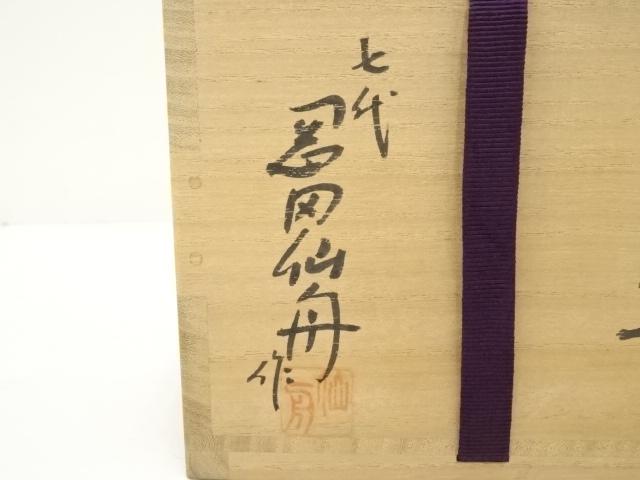 七代
岡田仙舟
作
仙舟